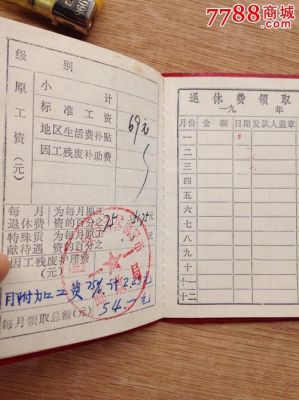 7788商城
.com
级 别
原工资(元)
小 计
标准工资
69元
地区生活费补贴
因工残废补助费
每月 为每月原工
退休费 资的百分之
75
特殊贡 为每月原工
献待遇 资的百分之
因工残废护理费
(元)
月附加工资
每月领取总额(元)
54.一元
退休费领取
一九 年
月份 金额 日期 发款人盖章
一
二
三
四
五
六
七
八
九
十
十一
十二